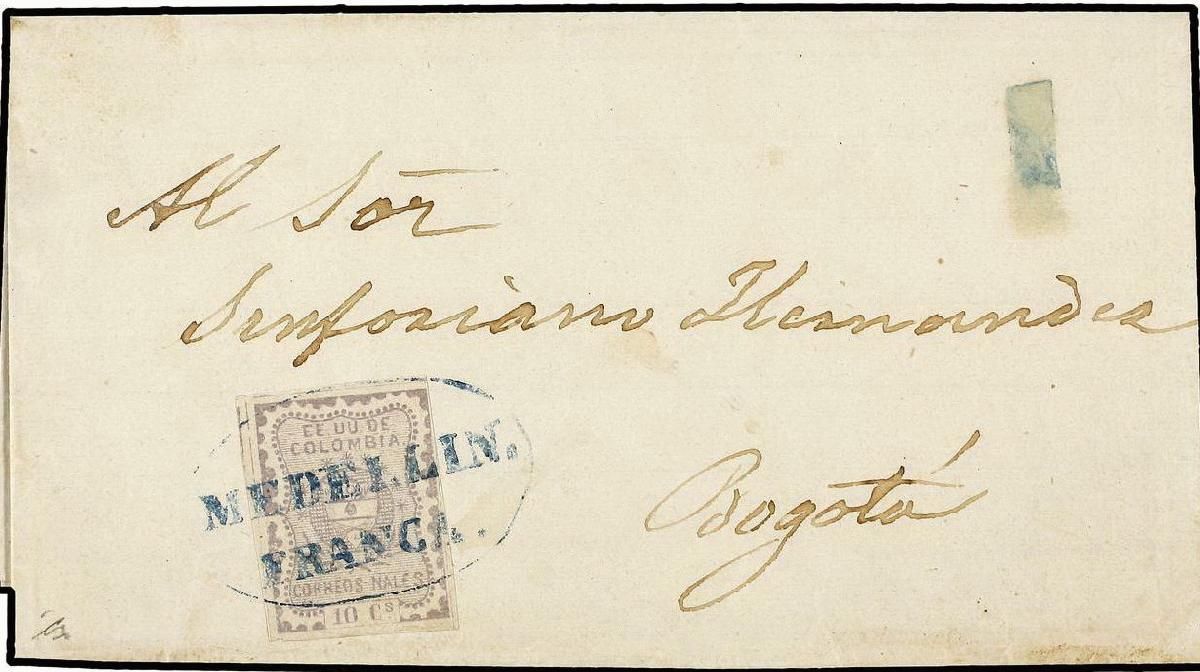 Al Sōr
Sinforiano Hernandez
Bogotá
EE UU DE
COLOMBIA
MEDELLIN.
FRANCA.
CORREOS NALES
10 Cs